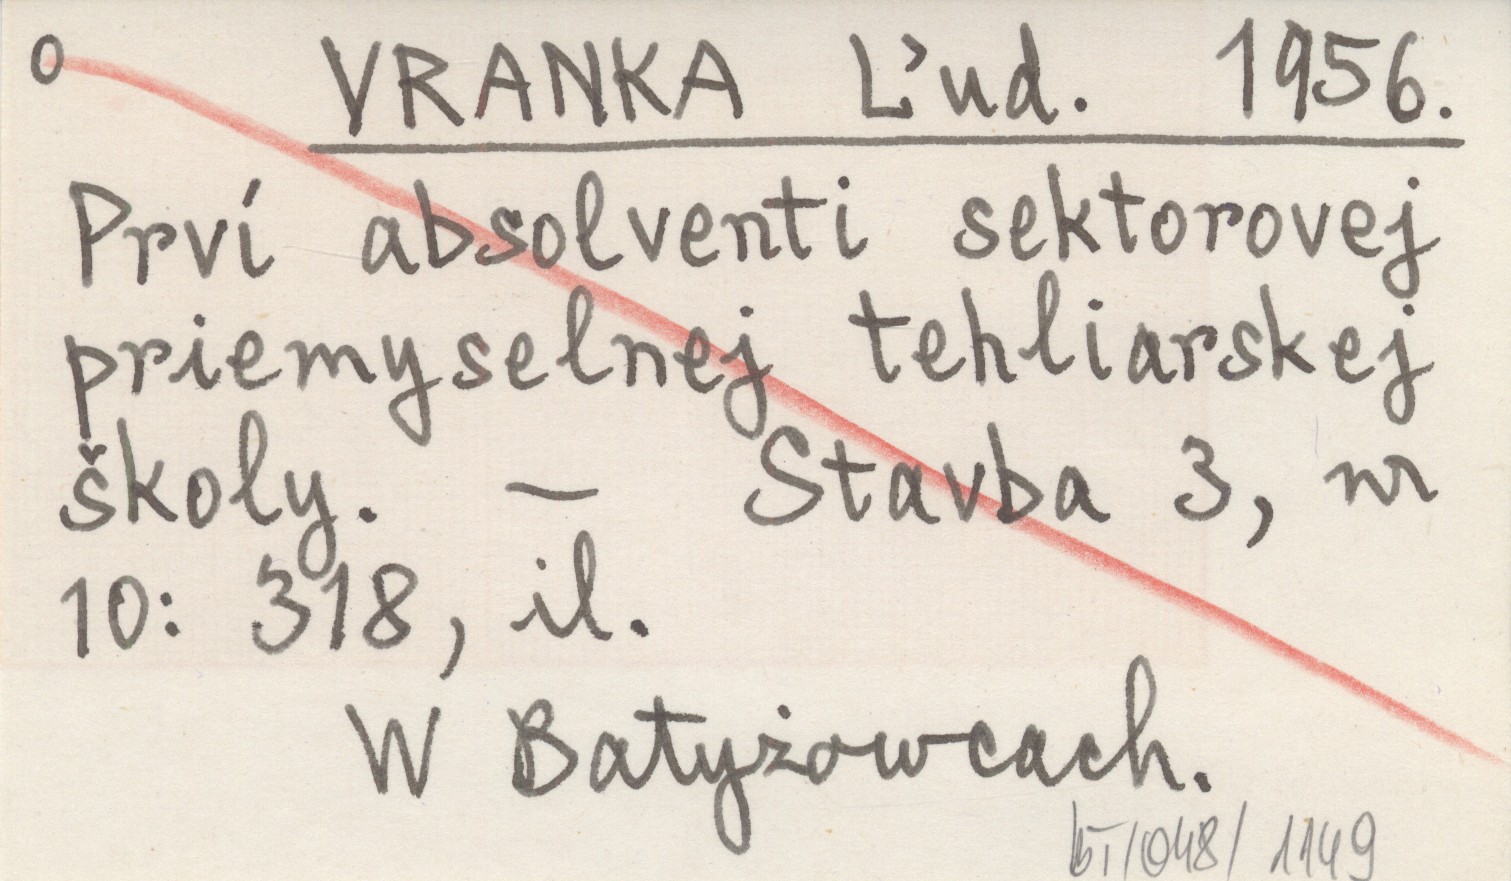 o VRANKA Ľud. 1956.
Prví absolventi sektorovej
priemyselnej tehliarskej
školy. — Stavba 3, nr
10: 318, il.
W Batyżowcach.
/048/ 1149